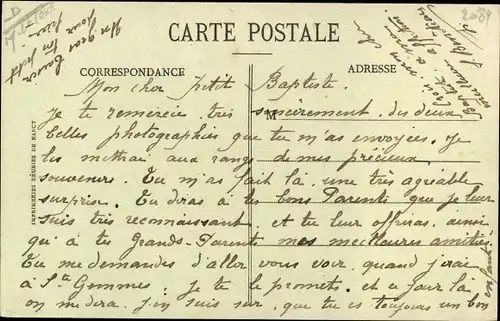 CARTE POSTALE
CORRESPONDANCE
ADRESSE
Mon cher Petit Baptiste.
Je te remercie très sincèrement des deux
M
belles photographies que tu m'as envoyées. Je
les mettrai aux rangs de mes précieux
souvenirs. Tu m'as fait là une très agréable
surprise. Tu diras à tes bons Parents que je leur
suis très reconnaissant et tu leur offriras ainsi
qu'à tes Grands-Parents mes meilleures amitiés.
Tu me demandes d'aller vous voir quand j'irai
à Ste Gemmes; je te le promets, et ce jour là
on me dira, j'en suis sûr, que tu es toujours un bon
enfant
Un gros baiser
ton petit
pour
IMPRIMERIES RÉUNIES DE NANCY
2089